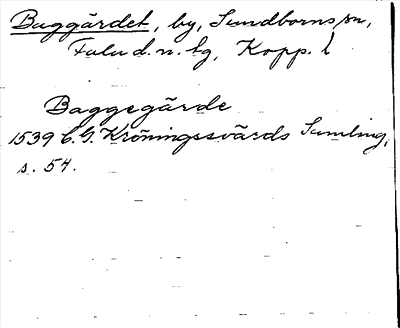 Buggärdet, by, Sundborns sn,
Falu d. n. tg, Kopp. l
Baggegärde
1539 C. G. Kröningssvärds Samling,
s. 54.